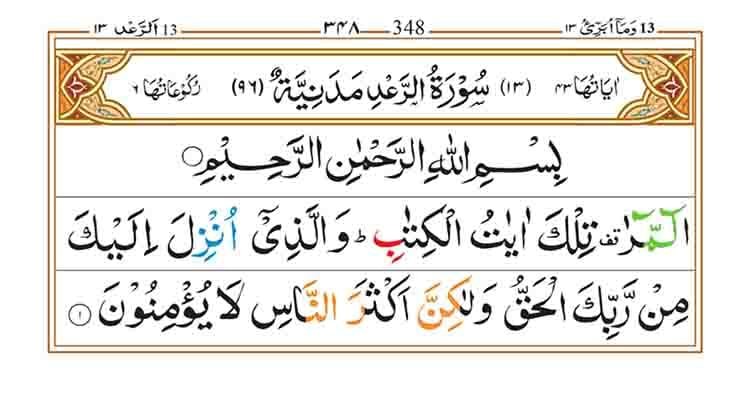 13 وَمَآ اُبَرِّئُ ۱۳ 348 ۳۴۸ 13 اَلرَّعْد ۱۳
اٰيَاتُهَا ۴۳ (۱۳) سُوْرَةُ الرَّعْدِ مَدَنِيَّةٌ (۹۶) رُكُوْعَاتُهَا ۶
بِسْمِ اللّٰهِ الرَّحْمٰنِ الرَّحِيْمِ
الٓمّٓرٰ ۚ تف تِلْكَ اٰيٰتُ الْكِتٰبِ ؕ وَالَّذِيْۤ اُنْزِلَ اِلَيْكَ
مِنْ رَّبِّكَ الْحَقُّ وَلٰكِنَّ اَكْثَرَ النَّاسِ لَا يُؤْمِنُوْنَ ۱